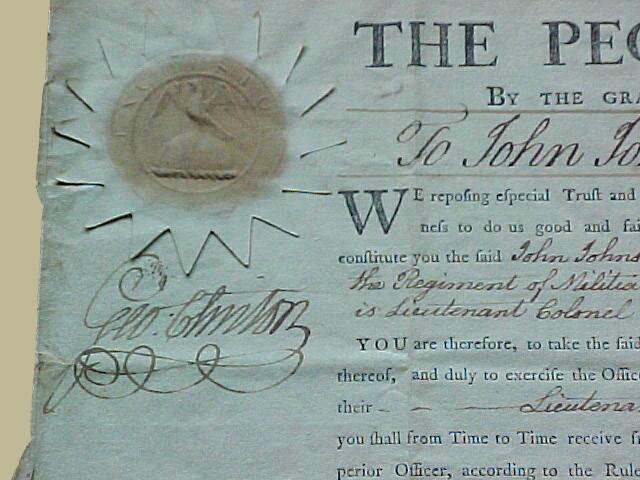 THE PEO
BY THE GRA
To John Jo
WE repoſing eſpecial Truſt and
neſs to do us good and fai
conſtitute you the ſaid John Johns
the Regiment of Militia
is Lieutenant Colonel
YOU are therefore, to take the ſaid
thereof, and duly to exerciſe the Offic
their Lieutena
you ſhall from Time to Time receive fr
perior Officer, according to the Rule
Geo: Clinton